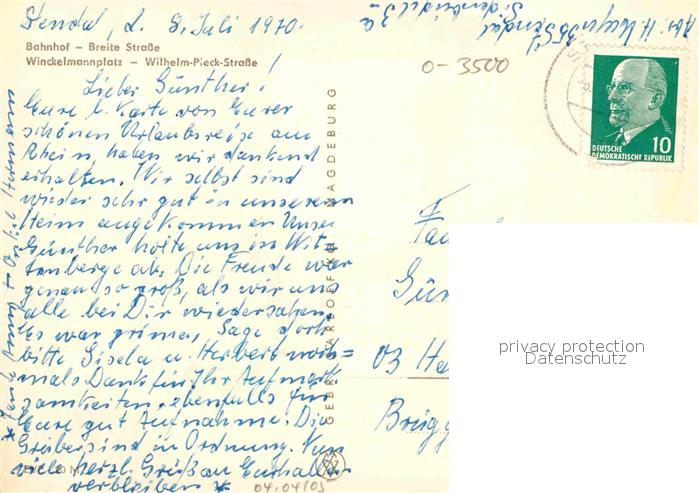 Stendal, d. 8. Juli 1970.
Bahnhof – Breite Straße
Winckelmannplatz – Wilhelm-Pieck-Straße
0-3500
Lieber Günther!
Eure l. Karte von Eurer
schönen Urlaubsreise am
Rhein, haben wir dankend
erhalten. Wir selbst sind
wieder sehr gut in unserem
Heim angekommen. Unser
Günther holte uns in Wit-
tenberge ab. Die Freude war
genau so groß, als wir uns
alle bei Dir wiedersahen.
Es war prima, Sage doch
bitte Gisela u. Herbert noch=
mals Dank für Ihr Aufmerk
samkeiten, ebenfalls für
Eure gut Aufnahme. Die
sind in Ordnung. Nun
viele herzl. Grüße an Euch alle
verbleiben *
GEBR. GARLOFF KG MAGDEBURG
DEUTSCHE
DEMOKRATISCHE REPUBLIK
10
Fa
Gün
03 Ha
Brügg
privacy protection
Datenschutz
04.04/05